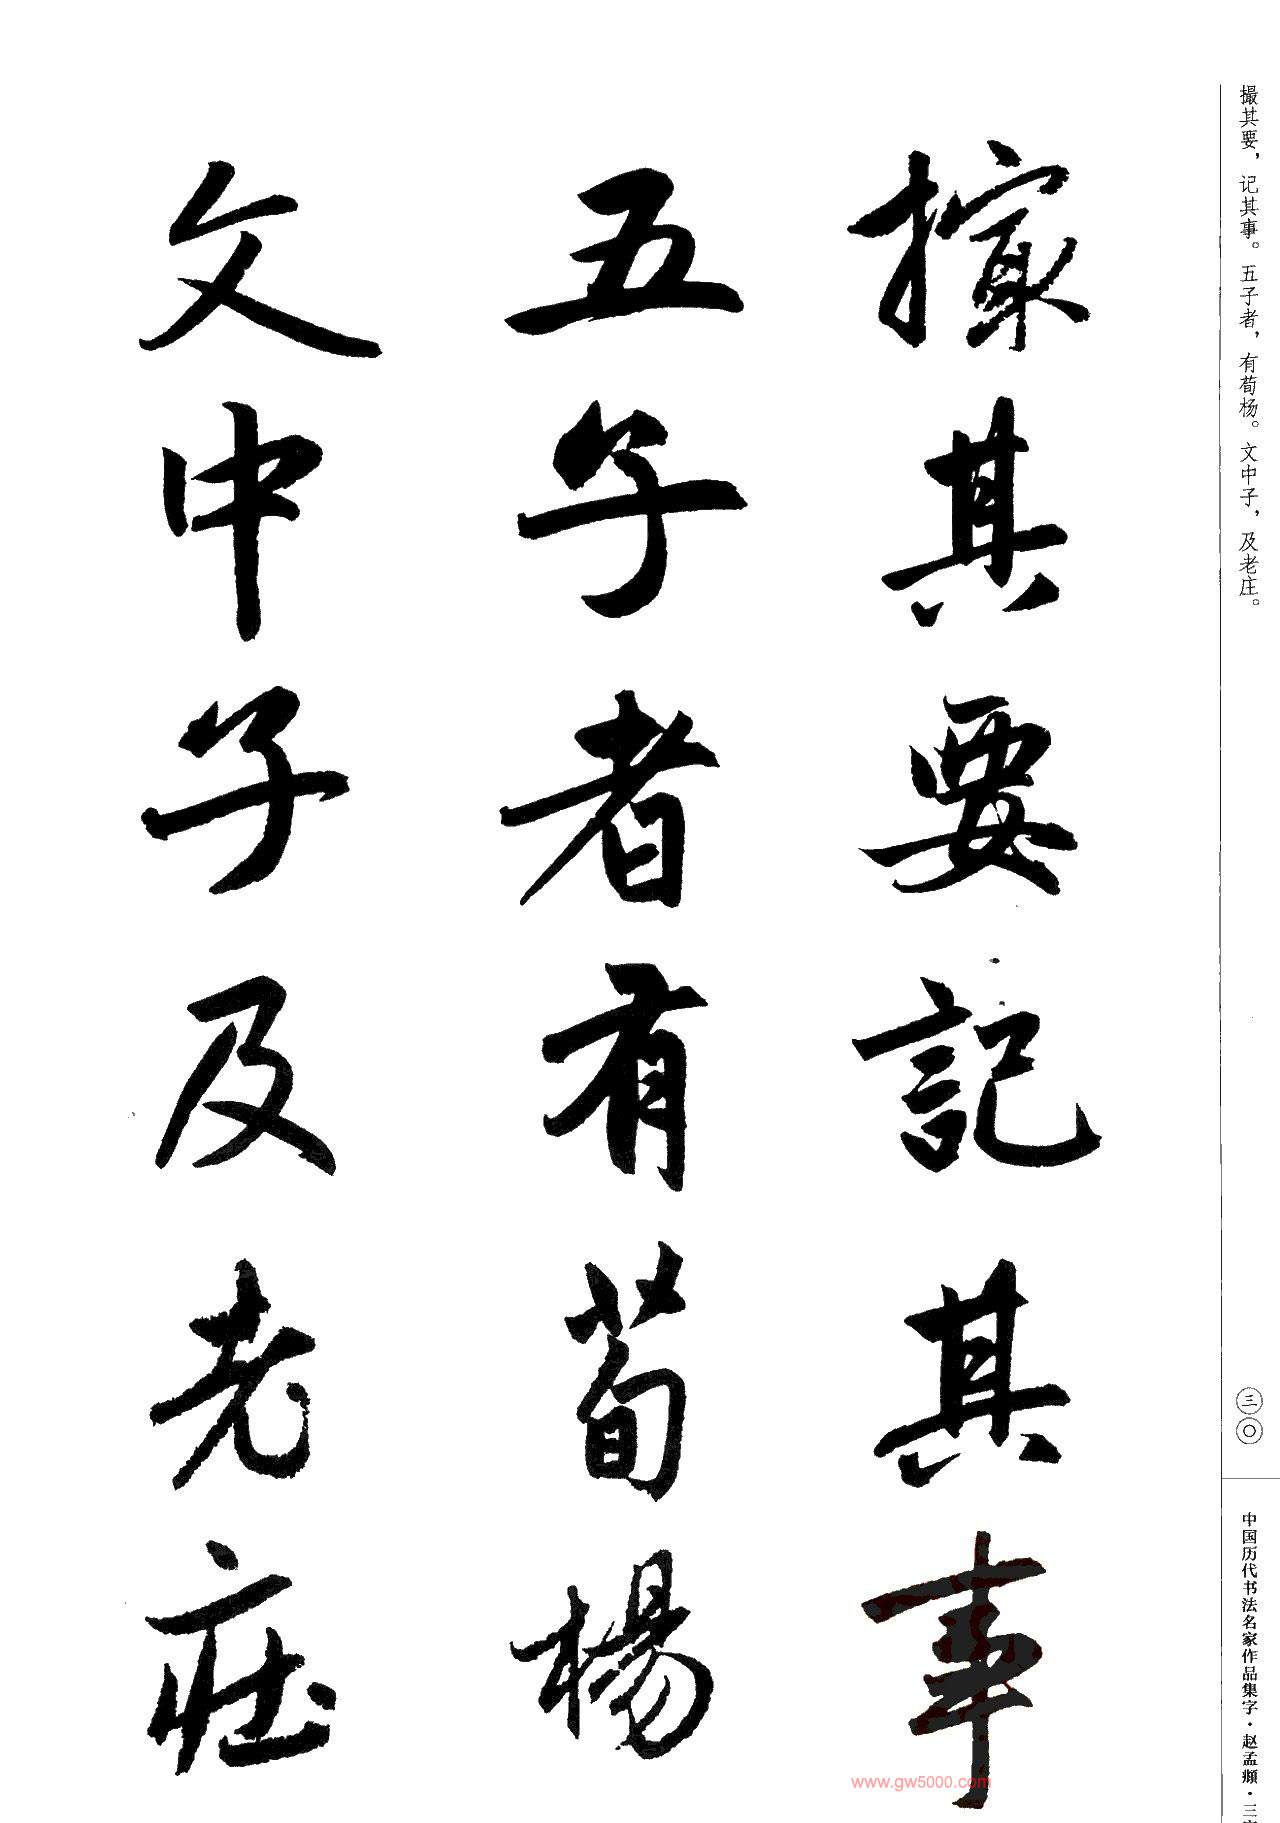 撮其要，记其事。五子者，有荀杨。文中子，及老庄。
撮其要記其事
五子者有荀楊
文中子及老庄
三〇
中国历代书法名家作品集字·赵孟頫·三
www.gw5000.com